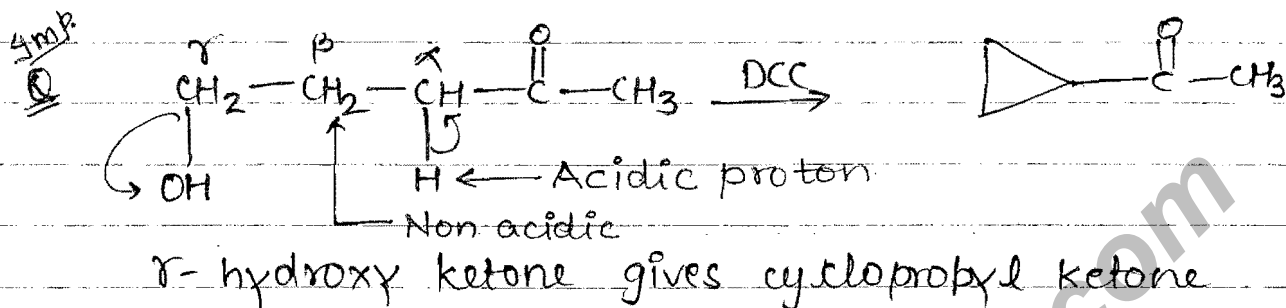 Imp.
Q γ β α O O
CH₂—CH₂—CH—C—CH₃ DCC → C—CH₃
OH H ← Acidic proton
Non acidic
γ- hydroxy ketone gives cyclopropyl ketone
com